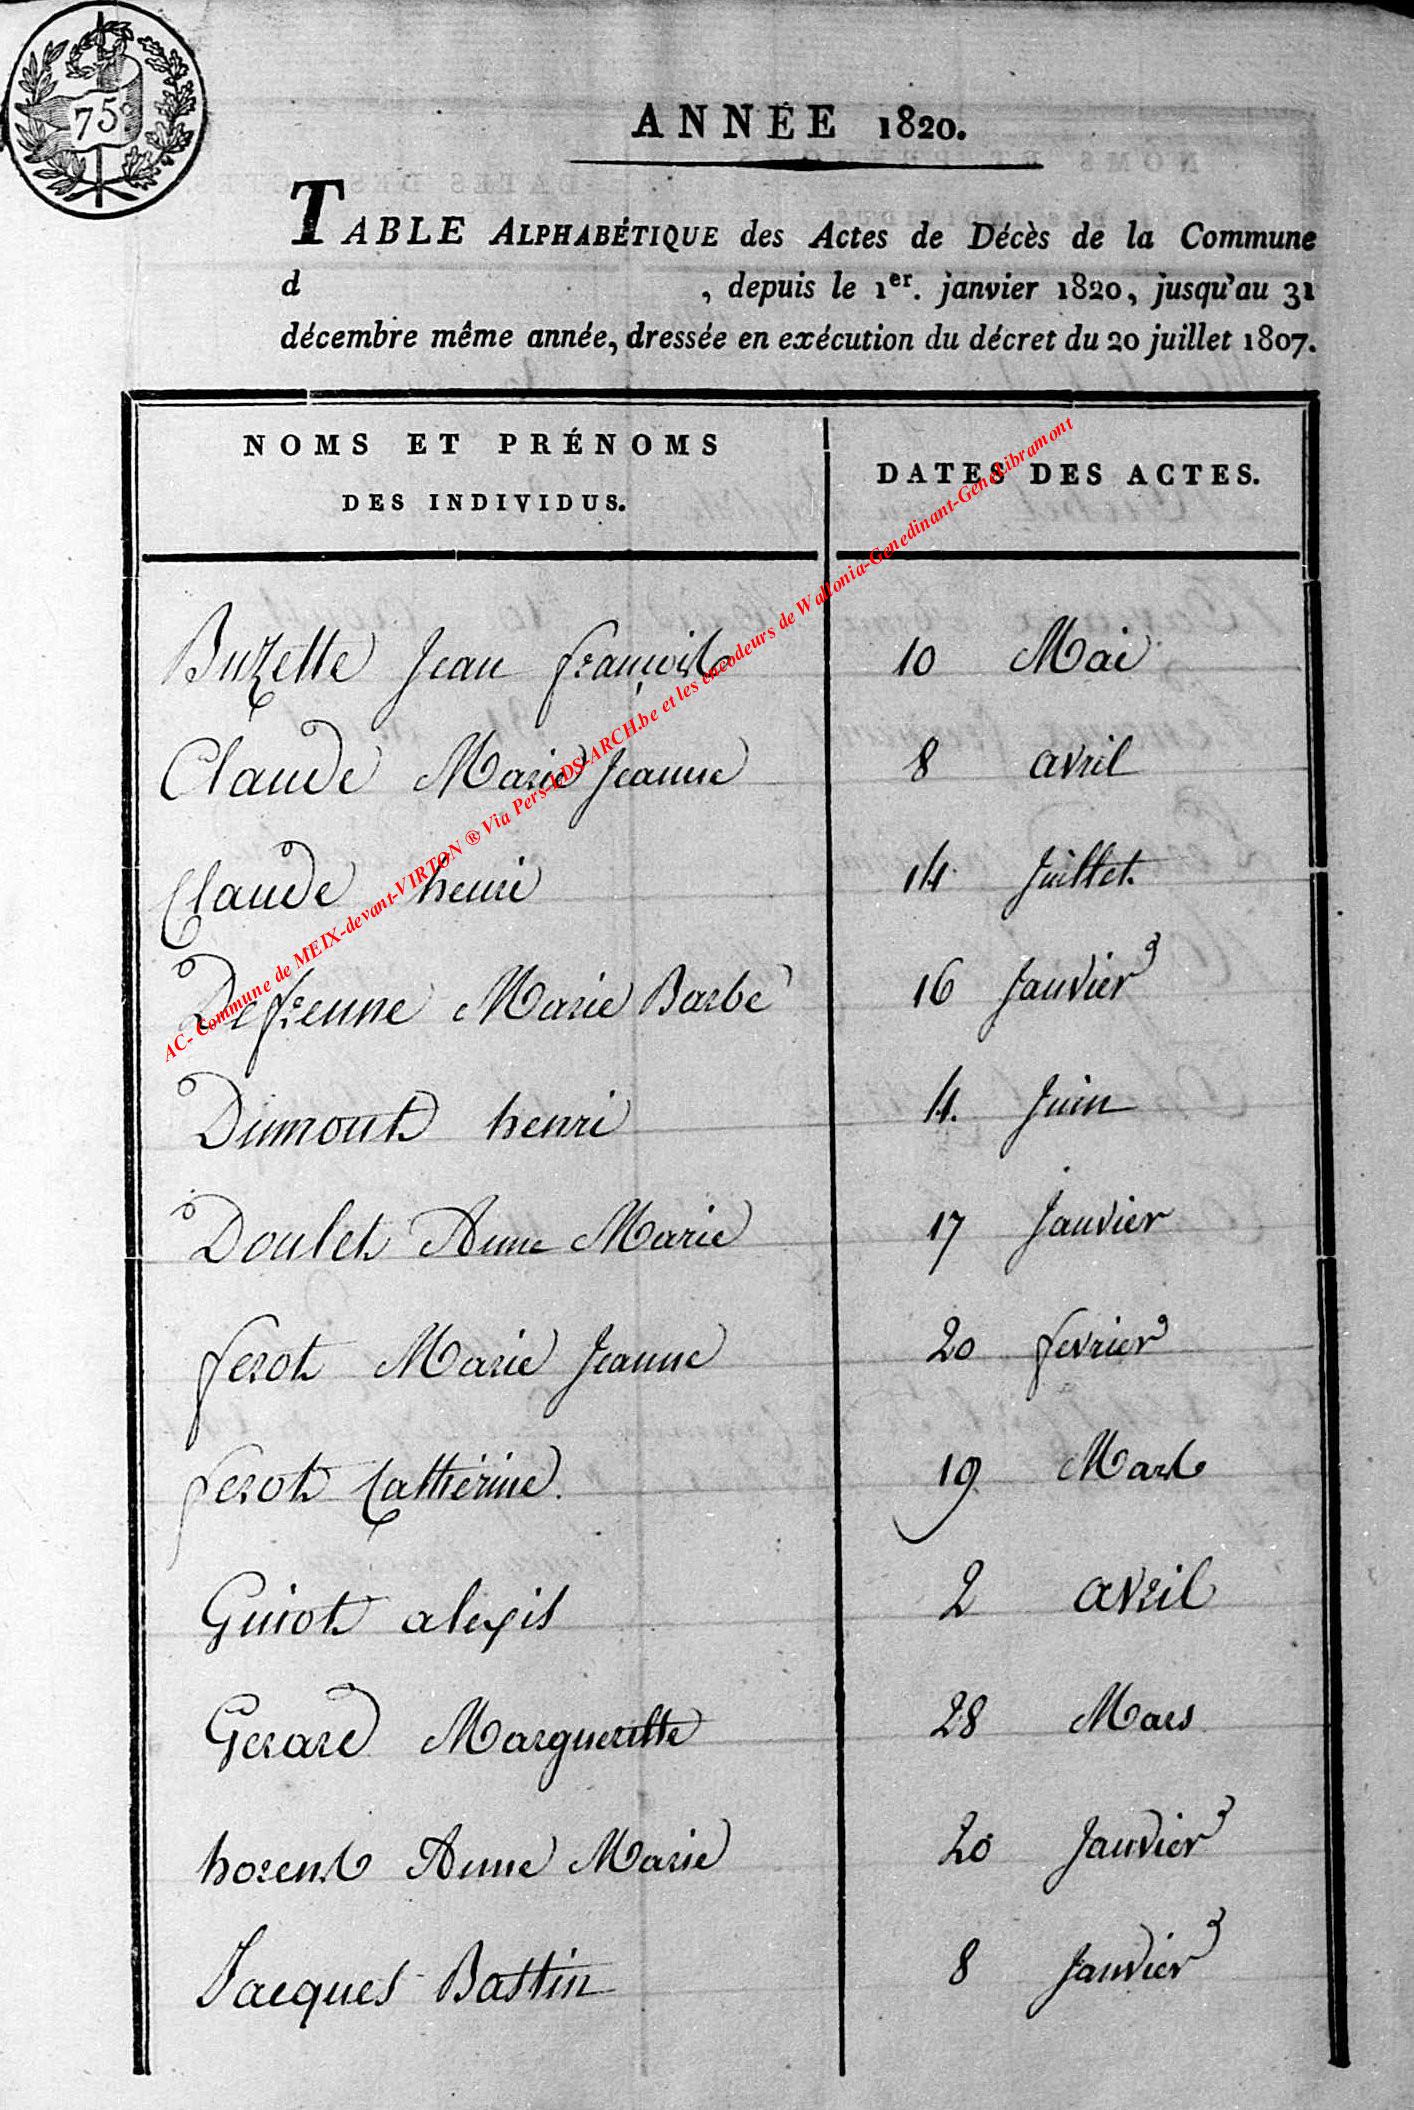 75c
ANNÉE 1820.
TABLE ALPHABÉTIQUE des Actes de Décès de la Commune
d , depuis le 1er. janvier 1820, jusqu'au 31
décembre même année, dressée en exécution du décret du 20 juillet 1807.
NOMS ET PRÉNOMS
DES INDIVIDUS.
DATES DES ACTES.
AC- Commune de MEIX-devant-VIRTON ® Via Pers-LDS-ARCH.be et les encodeurs de Wallonia-Genedinant-GeneLibramont
Buzette Jean françois 10 Mai
Claude Marie Jeanne 8 avril
Claude henri 14 Juillet.
Defrenne Marie Barbe 16 Janvier
Dumont henri 4. Juin
Doulet Anne Marie 17 Janvier
ferot Marie Jeanne 20 fevrier
ferot Cathérine. 19 Mars
Guiot alexis 2 avril
Gerard Margueritte 28 Mars
horent Anne Marie 20 Janvier
Jacques Bastin 8 Janvier